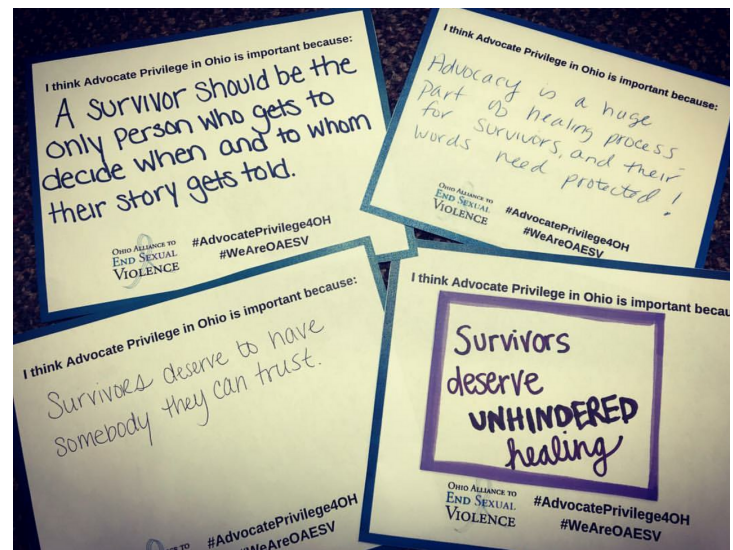 I think Advocate Privilege in Ohio is important because:
A survivor should be the
only person who gets to
decide when and to whom
their story gets told.
OHIO ALLIANCE TO
END SEXUAL
VIOLENCE
#AdvocatePrivilege4OH
#WeAreOAESV
I think Advocate Privilege in Ohio is important because:
Advocacy is a huge
part of healing process
for survivors, and their
words need protected!
OHIO ALLIANCE TO
END SEXUAL
VIOLENCE
#AdvocatePrivilege4OH
#WeAreOAESV
I think Advocate Privilege in Ohio is important because:
Survivors deserve to have
somebody they can trust.
CE TO
#AdvocatePrivilege4OH
#WeAreOAESV
I think Advocate Privilege in Ohio is important becau
Survivors
deserve
UNHINDERED
healing
OHIO ALLIANCE TO
END SEXUAL
VIOLENCE
#AdvocatePrivilege4OH
#WeAreOAESV